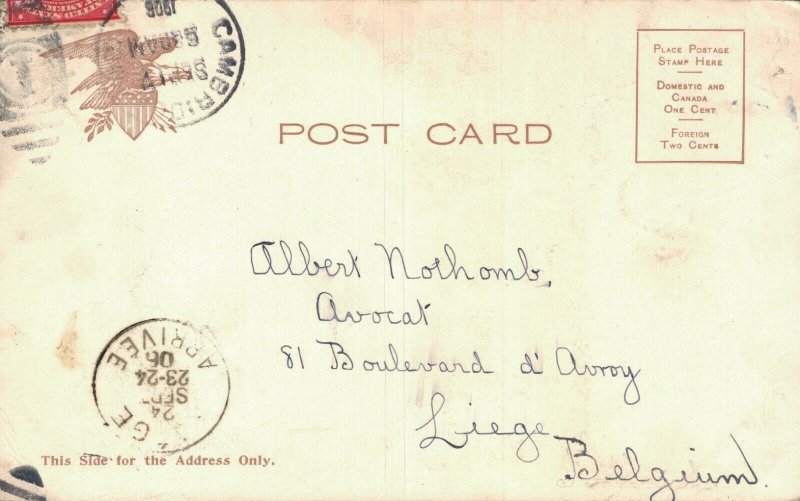 CAMBRID
SEP 13
1906
POST CARD
PLACE POSTAGE
STAMP HERE
DOMESTIC AND
CANADA
ONE CENT
FOREIGN
TWO CENTS
Albert Nothomb,
Avocat
81 Boulevard d' Avroy
Liege
Belgium.
ARRIVÉE
06
23-24
SEPT
24
GE
This Side for the Address Only.